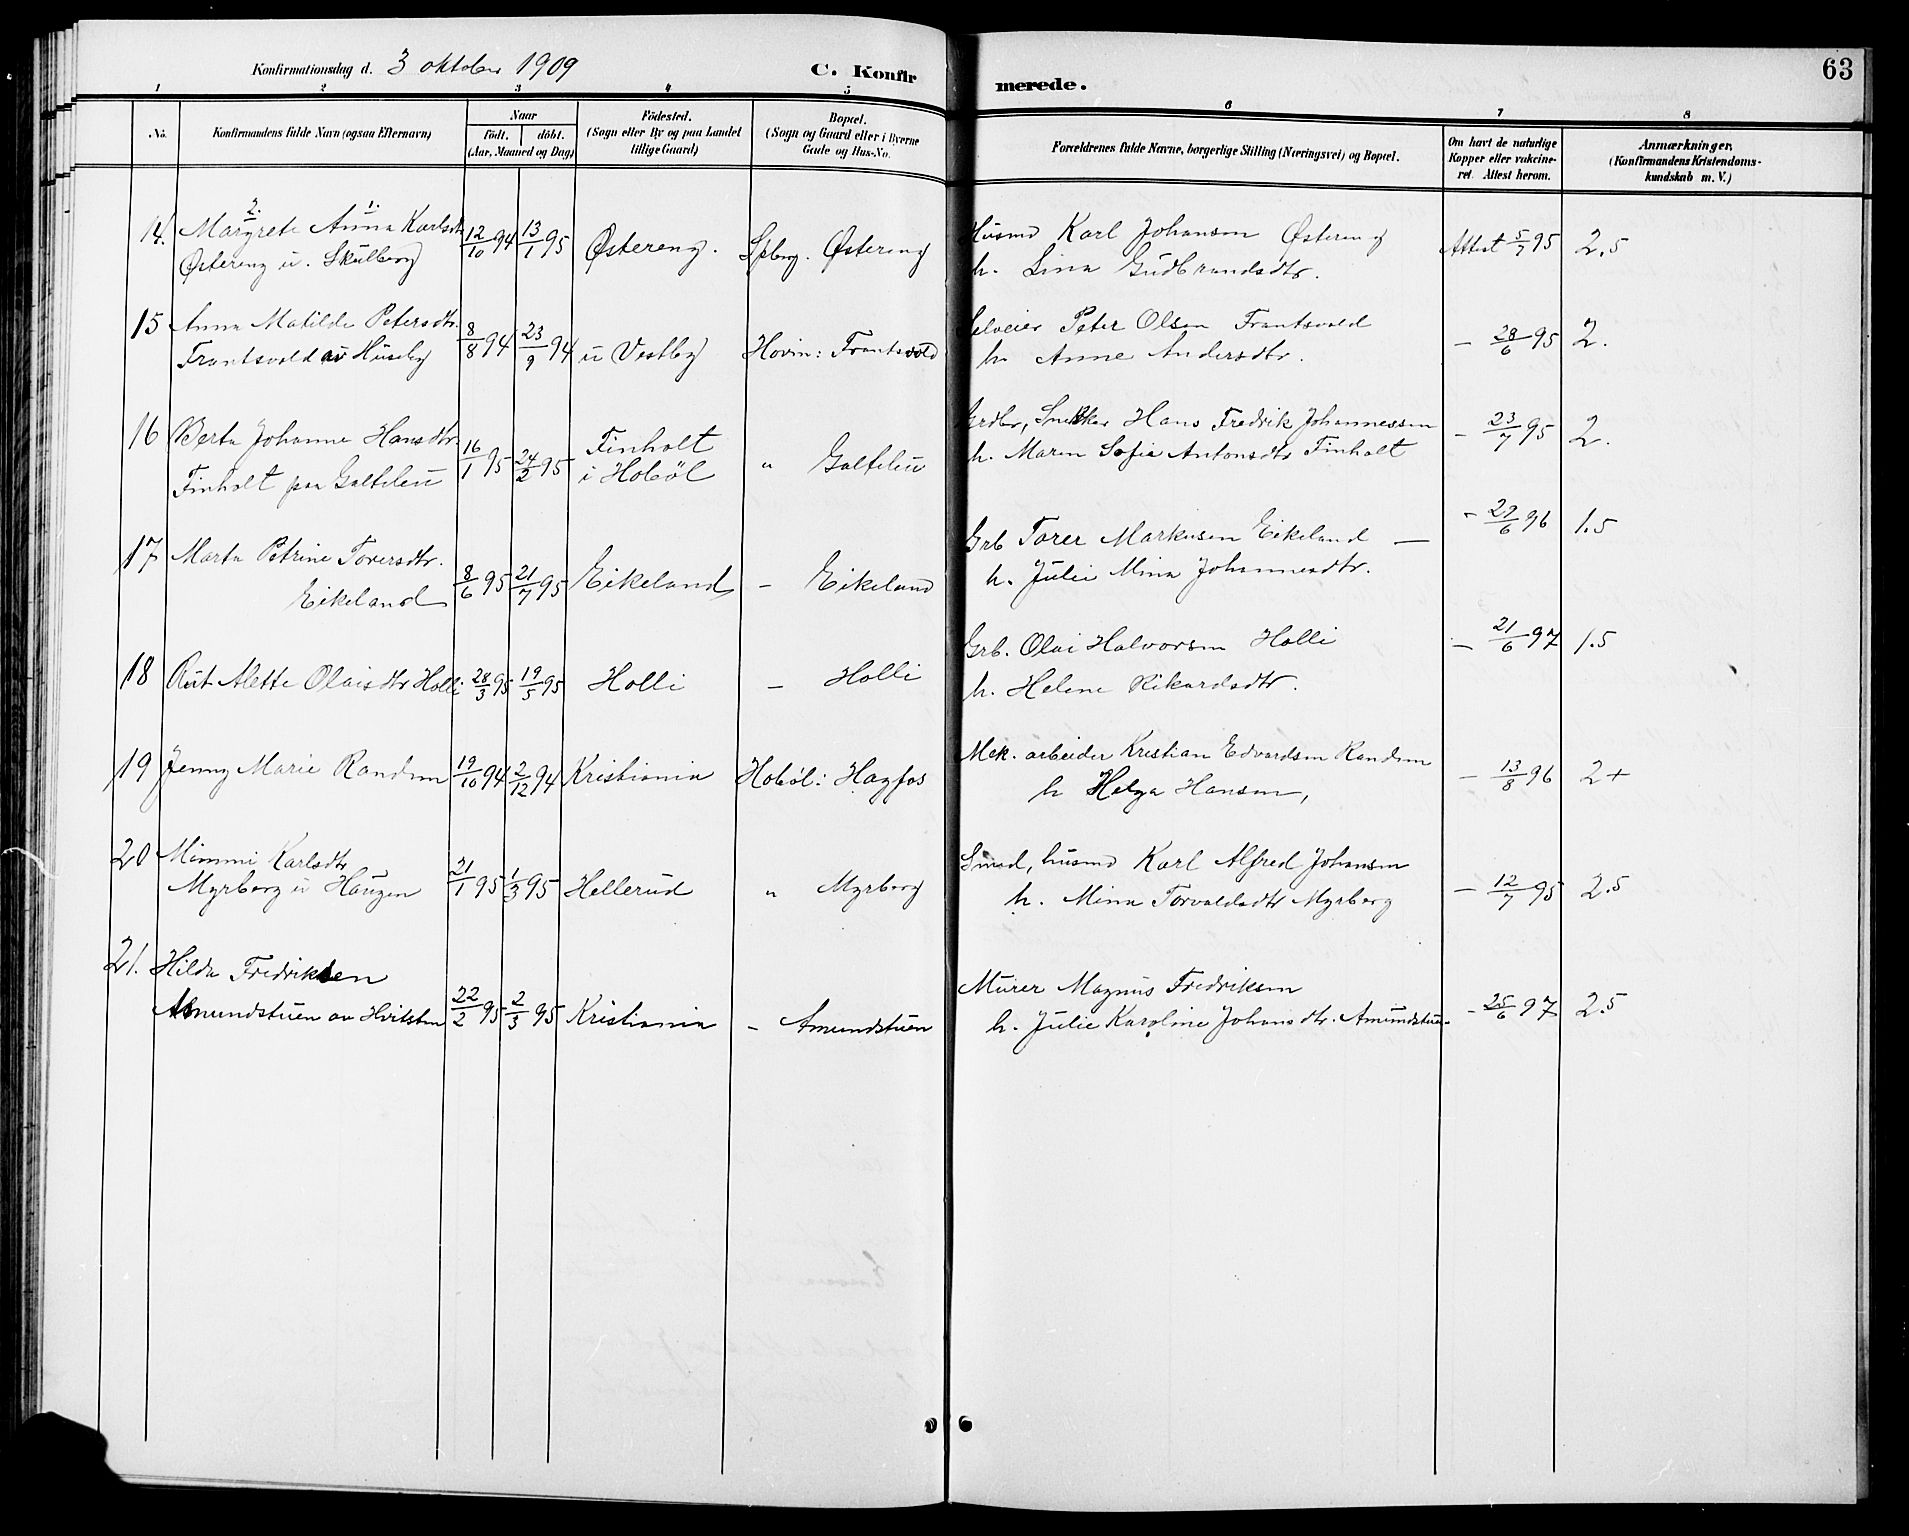 Konfirmationsdag d. 3 oktober 1909
C. Konfir
merede.
63
1 2 3 4 5 6 7 8
No.
Konfirmandens fulde Navn (ogsaa Efternavn)
Naar
födt. döbt.
(Aar, Maaned og Dag)
Födested.
(Sogn eller By og paa Landet
tillige Gaard)
Bopæl.
(Sogn og Gaard eller i Byerne
Gade og Hus-No.
Forældrenes fulde Navne, borgerlige Stilling (Næringsvei) og Bopæl.
Om havt de naturlige
Kopper eller vakcine-
ret. Attest herom.
Anmærkninger.
(Konfirmandens Kristendoms-
kundskab m. V.)
2. 1.
14. Margrete Anna Karlsdt 12/10 94 13/1 95 Østereng. Spberg. Østereng Husmd Karl Johansen Østereng Attest 5/7 95 2.5
Østereng u. Skulberg h. Lina Gudbrandsdtr.
15 Anna Matilde Petersdtr. 8/8 94 23/9 94 u Vestby Hovin: Frantsvold Selveier Peter Olsen Frantsvold - 28/6 95 2.
Frantsvold av Huseby h. Anne Andersdtr.
16 Berta Johanne Hansdtr. 16/1 95 24/2 95 Finholt i Hobøl " Galteleu Grdbr, Snekker Hans Fredrik Johannessen - 23/7 95 2.
Finholt paa Galteleu h. Maren Sofie Antonsdtr Finholt
17 Marta Petrine Torersdtr. 8/6 95 21/7 95 Eikeland - Eikeland Grb Torer Markusen Eikeland - 29/6 96 1.5
Eikeland h. Julie Mina Johannesdtr.
18 Rut Alette Olaisdtr Holli 28/3 95 19/5 95 Holli - Holli Grb. Olai Halvorsen Holli - 21/6 97 1.5
h. Helene Rikardsdtr.
19 Jenny Marie Randem 19/10 94 2/12 94 Kristiania Hobøl: Høgfos Mek. arbeider Kristian Edvardsen Randem - 13/8 96 2+
h Helga Hansen,
20 Mimmi Karlsdtr 21/1 95 1/3 95 Hellerud " Myrberg Smed, husmd Karl Alfred Johansen - 12/7 95 2.5
Myrberg u Haugen h. Mina Torvaldsdtr Myrberg
21. Hilda Fredriksen 22/2 95 2/3 95 Kristiania - Amundstuen Murer Magnus Fredriksen - 25/6 97 2.5
Amundstuen av Hvitsten h. Julie Karoline Johansdtr. Amundstuen